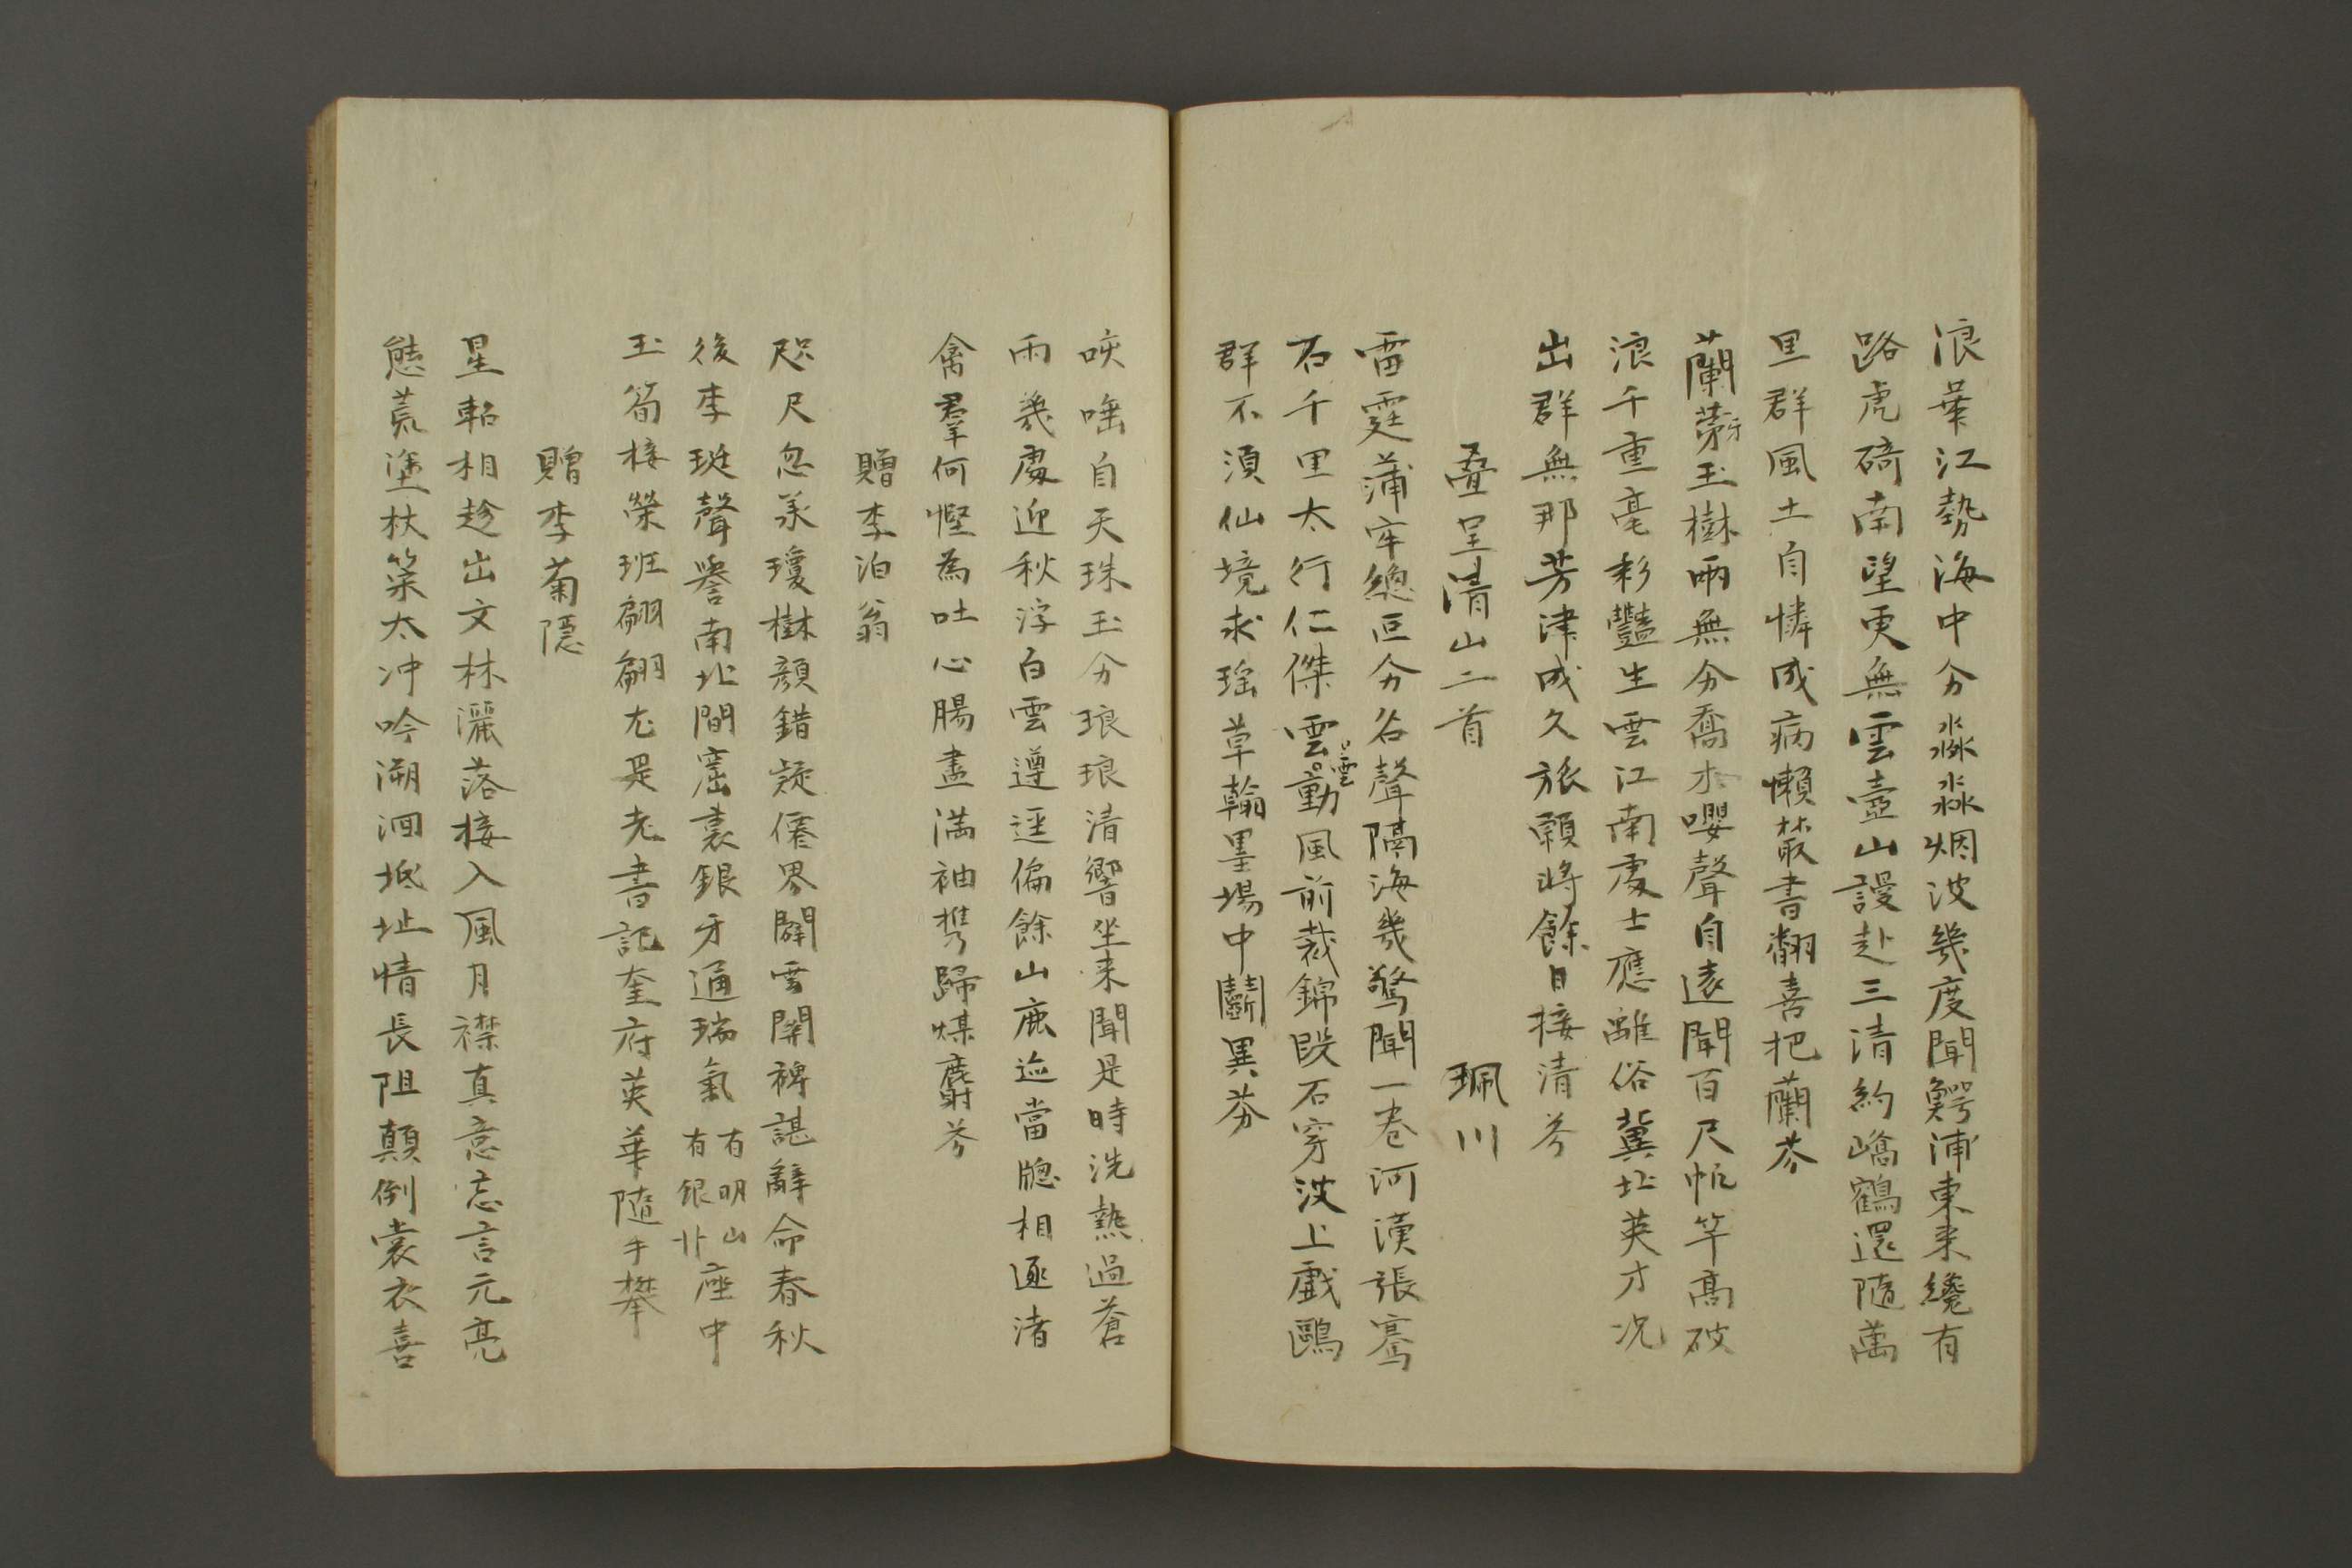 浪華江勢海中分淼淼烟波幾度聞鰐浦東来纔有
路虎碕南望更無雲壺山謾赴三清約嶠鶴還隨萬
里群風土自憐成病懶叢書翻喜把蘭芬
蘭茅玉樹兩無分喬木嚶聲自遠聞百尺帆竿髙破
浪千重毫彩豔生雲江南處士應離俗冀北英才况
出群無那芳津成久旅願将餘日接清芬
疊呈清山二首 珮川
雷霆蒲牢總叵分谷聲隔海幾驚聞一巻河漢張騫
石千里太行仁傑雲雲動風前裁錦段石穿波上戯鷗
群不須仙境求瑶草翰墨場中鬭異芬
咳唾自天珠玉分琅琅清響坐来聞是時洗熱過蒼
雨幾處迎秋浮白雲遵逕偏餘山鹿迹當牕相逐渚
禽羣何慳為吐心腸盡満袖携歸煤麝芬
贈李泊翁
咫尺忽羕瓊樹顔錯疑僊界闢雲関裨諶辭命春秋
後李珽聲譽南北間窟裏銀牙通瑞氣有明山有銀卝座中
玉筍接榮班翩翩尤是老書記奎府英華隨手攀
贈李菊隠
星軺相趁出文林灑落接入風月襟真意忘言元亮
態荒塗杖策太冲吟溯洄坻沚情長阻顛倒裳衣喜